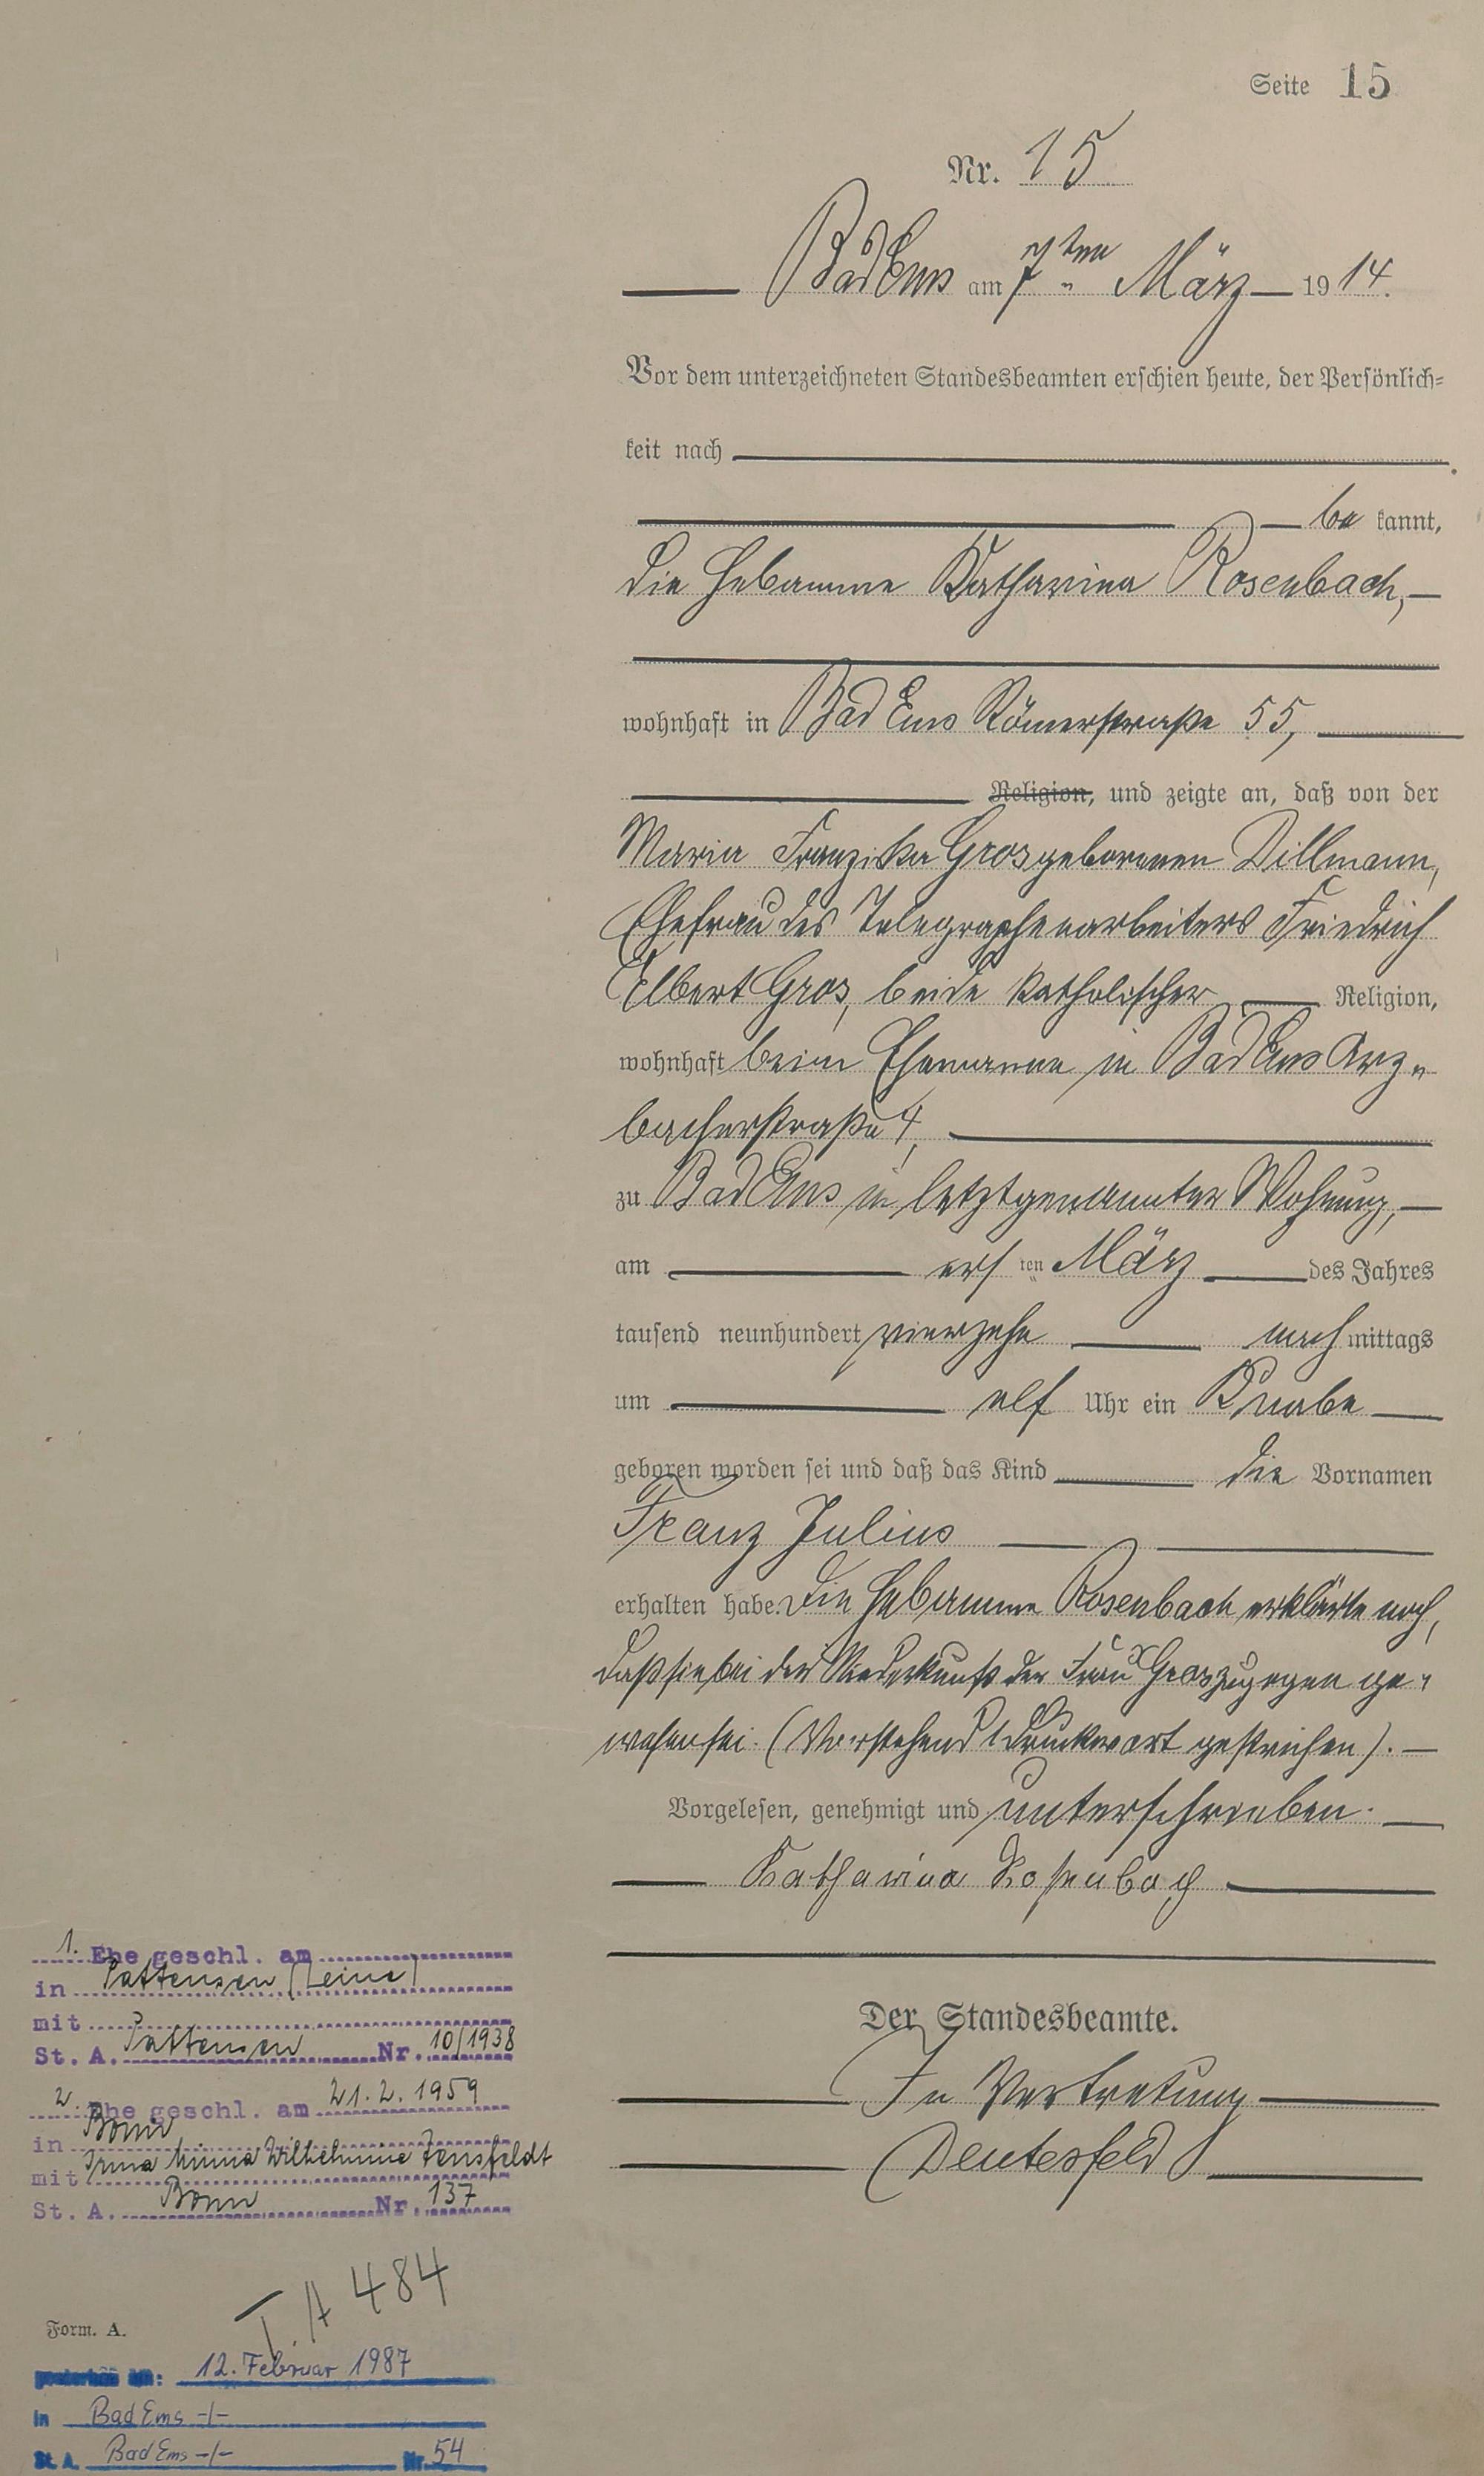 Seite 15
Nr. 15
Bad Ems am 7ten März 1914.
Vor dem unterzeichneten Standesbeamten erschien heute, der Persönlich=
keit nach
be kannt,
die Hebamme Katharina Rosenbach,
wohnhaft in Bad Ems Römerstraße 55,
Religion, und zeigte an, daß von der
Maria Franziska Gros geborenen Dillmann,
Ehefrau des Telegraphenarbeiters Friedrich
Elbert Gros, beide katholischer Religion,
wohnhaft beim Ehemanne in Bad Ems Arz=
bacherstraße 4,
zu Bad Ems in letztgenannter Wohnung,
am ersten März des Jahres
tausend neunhundert vierzehn nachmittags
um elf Uhr ein Knabe
geboren worden sei und daß das Kind die Vornamen
Franz Julius
erhalten habe. Die Hebamme Rosenbach erklärte noch,
daß sie bei der Niederkunft der Frau Gros zugegen ge=
wesen sei. (Vorstehend 1 Druckwort gestrichen).
Vorgelesen, genehmigt und unterschrieben.
Katharina Rosenbach
Der Standesbeamte.
In Vertretung
Deutesfeld
1. Ehe geschl. am
in Pattensen (Leine)
mit
St. A. Pattensen Nr. 10/1938
2. Ehe geschl. am 21.2.1959
in Bonn
mit Irma Minna Wilhelmine Zensfeldt
St. A. Bonn Nr. 137
T. A 484
Form. A.
12. Februar 1987
in Bad Ems -/-
St. A. Bad Ems -/- Nr. 54